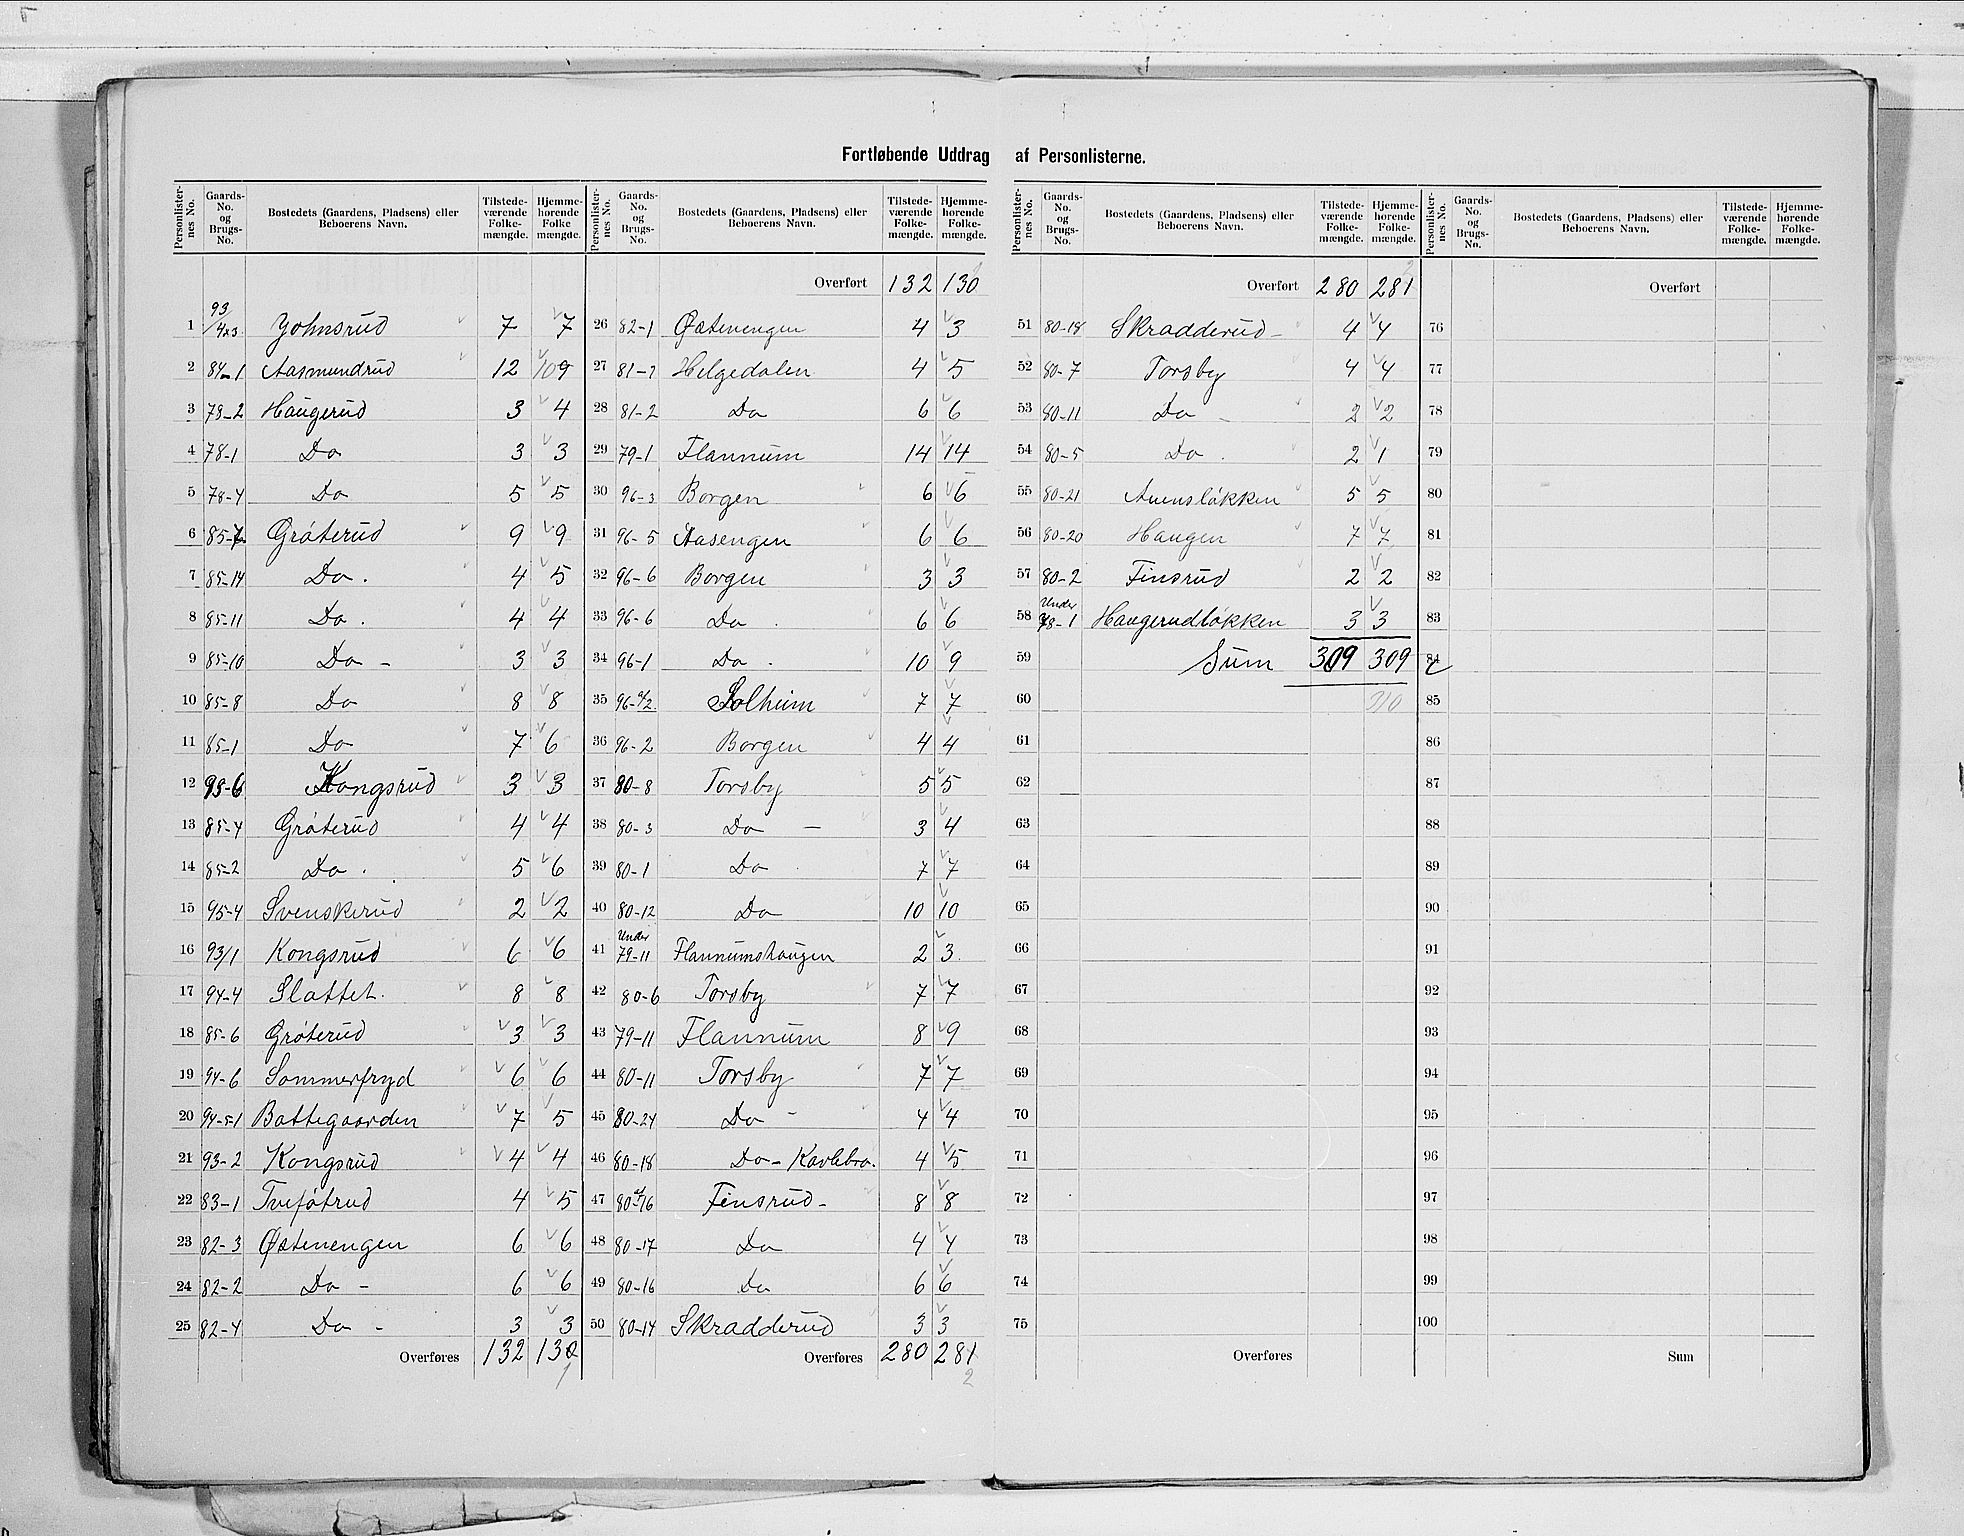 Fortløbende Uddrag af Personlisterne.
Personlister-nes No. Gaards-No. og Brugs-No. Bostedets (Gaardens, Pladsens) eller Beboerens Navn. Tilstede-værende Folke-mængde. Hjemme-hørende Folke mængde.
1 93/4x3 Johnsrud 7 7
2 84-1 Aasmundrud 12 10 9
3 78-2 Haugerud 3 4
4 78-1 Do 3 3
5 78-4 Do 5 5
6 85-7 Gróterud 9 9
7 85-14 Do. 4 5
8 85-11 Do. 4 4
9 85-10 Do - 3 3
10 85-8 Do 8 8
11 85-1 Do 7 6
12 93-6 Kongsrud 3 3
13 85-4 Gróterud 4 4
14 85-2 Do. 5 6
15 95-4 Svenskerud 2 2
16 93/1 Kongsrud 6 6
17 94-4 Slattet. 8 8
18 85-6 Gróterud 3 3
19 94-6 Sommerfryd 6 6
20 94-5-1 Battegaarden 7 5
21 93-2 Kongsrud 4 4
22 83-1 Tvefótrud 4 5
23 82-3 Østenengen 6 6
24 82-2 Do - 6 6
25 82-4 Do - 3 3
Overføres 132 130
1
Personlister-nes No. Gaards-No. og Brugs-No. Bostedets (Gaardens, Pladsens) eller Beboerens Navn. Tilstede-værende Folke-mængde. Hjemme-hørende Folke-mængde.
Overført 132 130
26 82-1 Østenengen 4 3
27 81-1 Helgedalen 4 5
28 81-2 Do 6 6
29 79-1 Flannum 14 14
30 96-3 Borgen 6 6
31 96-5 Aasengen 6 6
32 96-6 Borgen 3 3
33 96-6 Do. 6 6
34 96-1 Do. 10 9
35 96-2 Solheim 7 7
36 96-2 Borgen 4 4
37 80-8 Torsby 5 5
38 80-3 Do - 3 4
39 80-1 Do 7 7
40 80-12 Do 10 10
41 Under 79-11 Flannumshaugen 2 3
42 80-6 Torsby 7 7
43 79-11 Flannum 8 9
44 80-11 Torsby 7 7
45 80-24 Do - 4 4
46 80-18 Do - Kavlebro. 4 5
47 80-16 Finsrud - 8 8
48 80-17 Do 4 4
49 80-16 Do 6 6
50 80-14 Skradderud 3 3
Overføres 280 281
2
Personlister-nes No. Gaards-No. og Brugs-No. Bostedets (Gaardens, Pladsens) eller Beboerens Navn. Tilstede-værende Folke-mængde. Hjemme-hørende Folke-mængde.
Overført 280 281
2
51 80-18 Skradderud - 4 4
52 80-7 Torsby 4 4
53 80-11 Do - 2 2
54 80-5 Do. 2 1
55 80-21 Auenslókken 5 5
56 80-20 Haugen 7 7
57 80-2 Finsrud 2 2
58 Under 78-1 Haugerudlókken 3 3
59 Sum 309 309
60 310
61
62
63
64
65
66
67
68
69
70
71
72
73
74
75
Overføres
Personlister-nes No. Gaards-No. og Brugs-No. Bostedets (Gaardens, Pladsens) eller Beboerens Navn. Tilstede-værende Folke-mængde. Hjemme-hørende Folke-mængde.
Overført
76
77
78
79
80
81
82
83
84
85
86
87
88
89
90
91
92
93
94
95
96
97
98
99
100
Sum